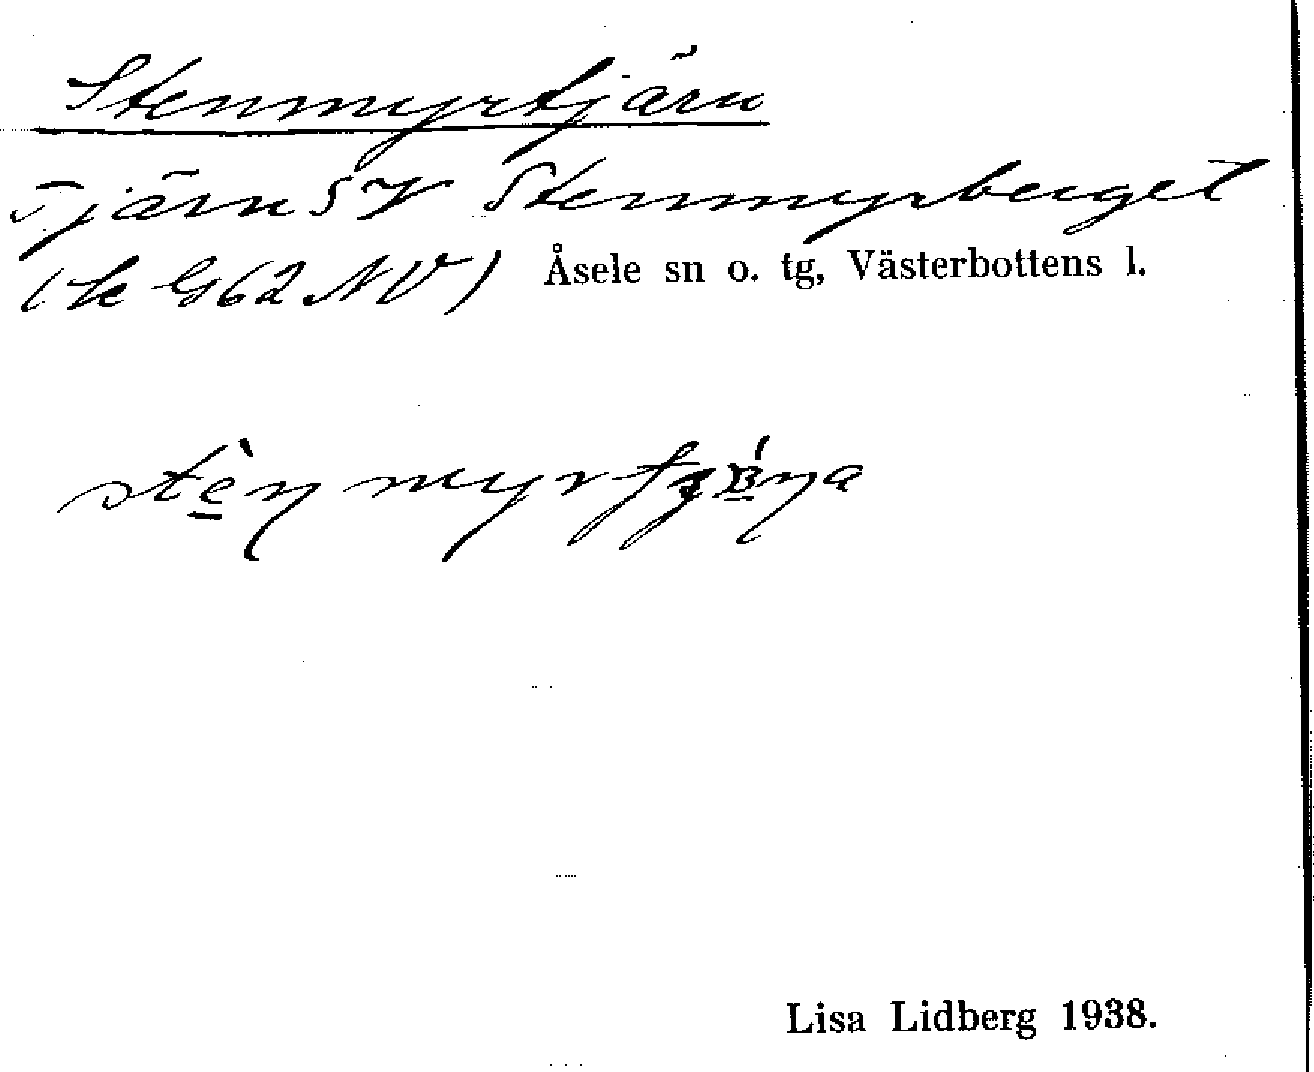 Stenmyrtjärn
Tjärn SV Stenmyrberget
(Ek G62 NV) Åsele sn o. tg, Västerbottens l.
Lisa Lidberg 1938.